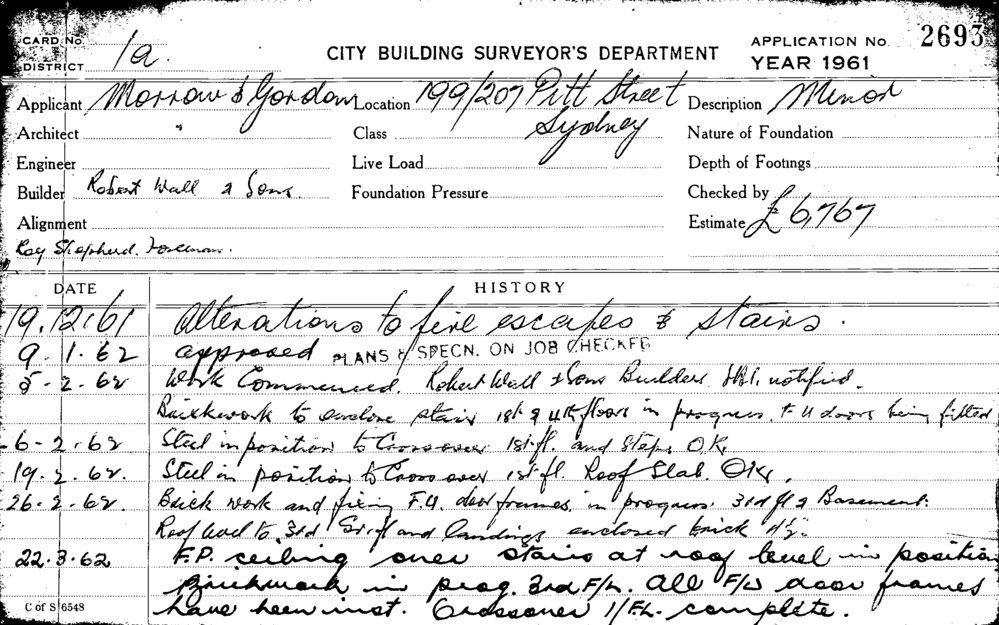 CARD No. 1a. CITY BUILDING SURVEYOR'S DEPARTMENT APPLICATION No. 2693
DISTRICT YEAR 1961
Applicant Morrow & Gordon Location 199/207 Pitt Street Description Minor
Architect " Class Sydney Nature of Foundation
Engineer Live Load Depth of Footings
Builder Robert Wall & Sons. Foundation Pressure Checked by
Alignment Estimate £6,767
Roy Shepherd. Foreman.
DATE HISTORY
19.12.61 Alterations to fire escapes & stairs.
9.1.62 approved PLANS & SPECN. ON JOB CHECKED
5-2-62 Work Commenced. Robert Wall & Sons Builders notified.
Brickwork to enclose stairs 1st & 4th floors in progress. F.U doors being fitted
6-2-62 Steel in position to Crossover 1st fl. and Steps O.K.
19.2.62. Steel in position to Crossover 1st fl. Roof Slab. OK.
26-2-62. Brick work and fixing F.U. door frames, in progress. 3rd fl & Basement.
Roof level to 3rd Gr. fl and landings enclosed brick
22.3.62 F.P. ceiling over stairs at roof level in position
Brickwork in prog. 3rd F/L. All F/U door frames
C of S 6548 have been inst. Crossover 1/FL. complete.